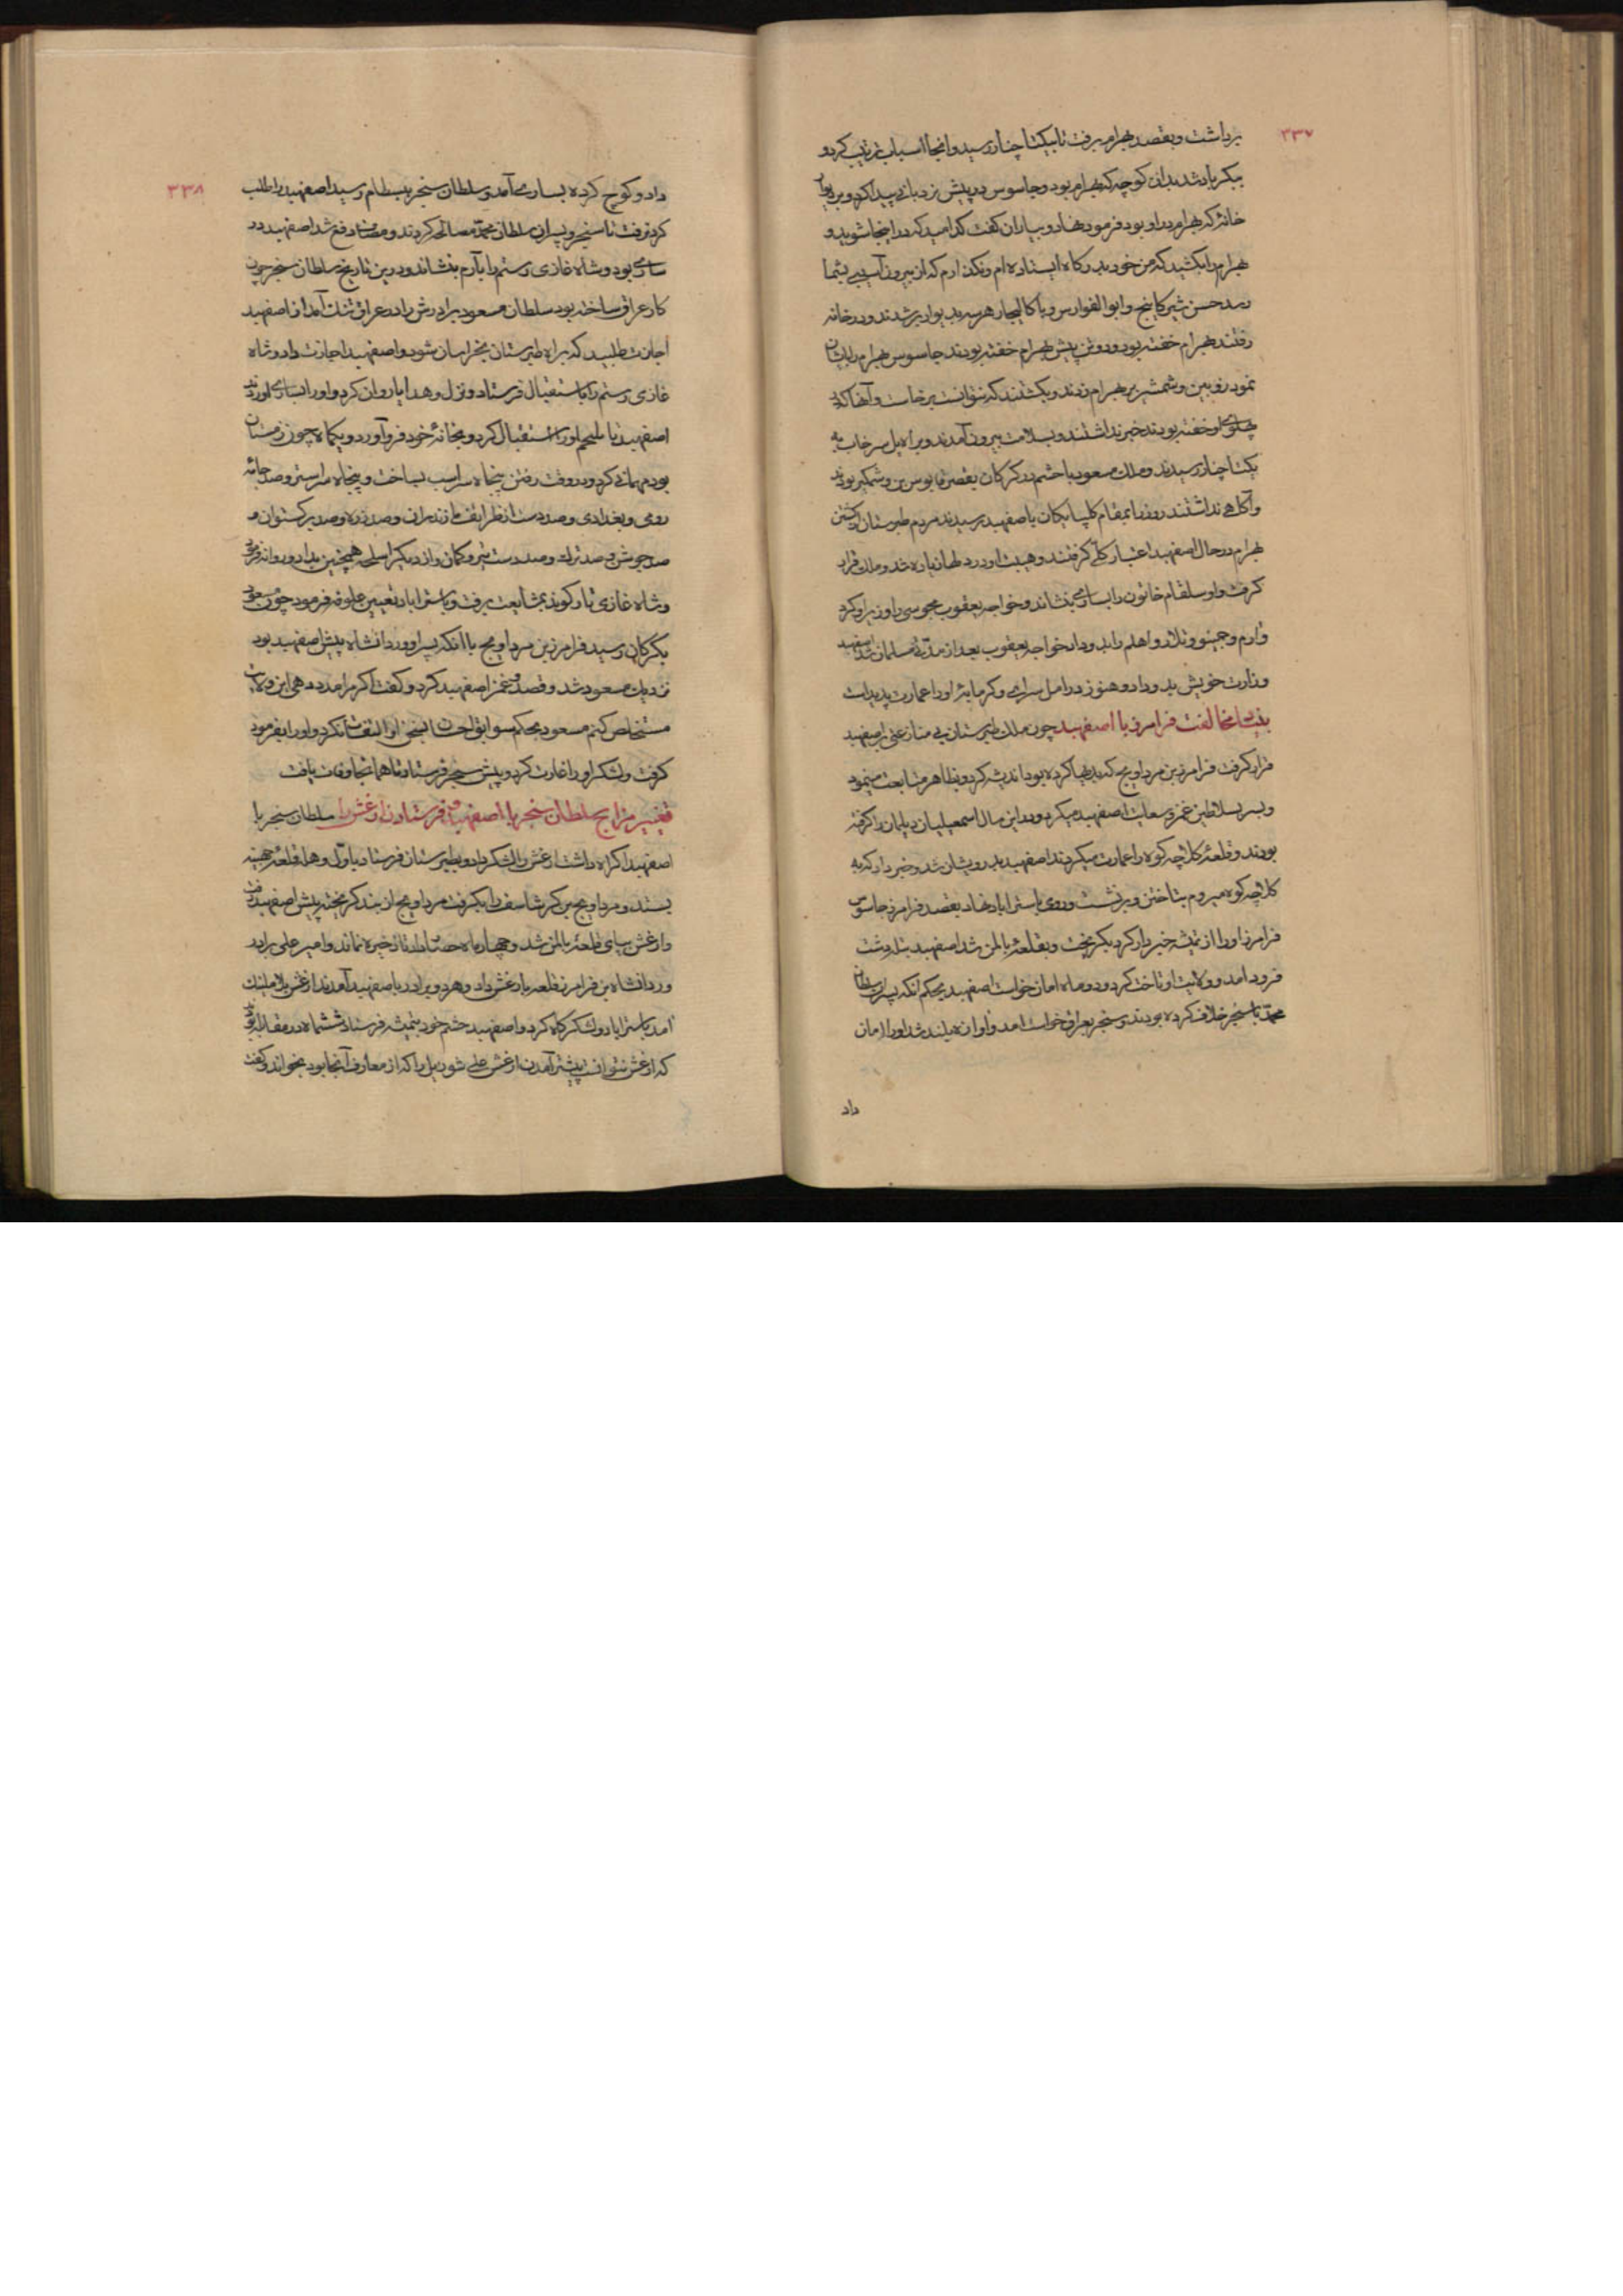 ۳۳۷
برداشت و بقصد بهرام برفت تا بیکتا چناررسید و آنجا اسباب ترتیب کرد و
بدان کوچه که بهرام بود و جاسوس در پیش نردبانی پیدا کرد و بر دیوار
خانهٔ که بهرام در او بود فرمود نهاد و بیاران گفت کدامید که در اینجا شوید و
بهرام را بکشید که من خود بدرگاه ایستاده ام و نگذارم که از بیرون آسیبی بشما
رسد حسن شیرکاپنج و ابوالفوارس و باکالیجار هر سه بدیوار بر شدند و در خانه
رفتند بهرام خفته بود و دو تن پیش بهرام خفته بودند جاسوس بهرام را بایشان
نمود زوبین و شمشیر بر بهرام زدند و بکشتند که نتوانست برخاست و آنها که
پهلوی او خفته بودند خبر نداشتند و بسلامت بیرون آمدند و براه پل سرخاب به
یکتا چنار رسیدند و ملک مسعود با حشم در کرکان بقصر قابوس بن وشمکیر بودند
و آگاهی نداشتند روز را بمقام کلپایکان باصفهبد رسیدند مردم طبرستان از کشتن
بهرام در حال اصفهبد اعتبار کلی گرفتند و هیبت او در دلها زیاده شد و ملک قرار
گرفت و او سلقام خاتون را بساری بنشاند و خواجه یعقوب مجوسی را وزیر او کرد
و ارم و جمنو و تلار و اهلم را بدو داد خواجه یعقوب بعد از مدتی مسلمان شد اصفهبد
وزارت خویش بدو داد و هنوز در آمل سرای و گرمابهٔ او را عمارت پدیدست
مخالفت فرامرز با اصفهبد چون ملک طبرستان بی منازعی بر اصفهبد
قرار گرفت فرامرز بن مرداویج که بدیها کرده بود اندیشه کرد و بظاهر متابعت مینمود
و بسر بسلاطین غمز و سعایت اصفهبد میکرد و در این سال اسمعیلیان دیلمان را کرفته
بودند و قلعهٔ کلاچه کوه را عمارت میکردند اصفهبد بدرویشان شد و خبر داد که به
کلاچه کوه میروم بتاختن و برنشست و روی باستراباد نهاد بقصد فرامرز جاسوس
فرامرز او را از تمیشه خبردار کرد بگریخت و بقلعهٔ بالمن شد اصفهبد
فرود آمد و ولایت او تاخت کرد و دو ماه امان خواست اصفهبد بحکم آنکه پسران سلطان
محمد با سنجر خلاف کرده بودند و سنجر بعراق خواست آمد و آوازه بلند شد او را امان
داد
۳۳۸
داد و کوچ کرده بساری آمد و سلطان سنجر ببسطام رسید اصفهبد را طلب
کرد نرفت تا سنجر و پسران سلطان محمد مصالحه کردند و مضاد دفع شد اصفهبد در
ساری بود و شاه غازی رستم را بآرم بنشاند و درین تاریخ سلطان سنجر چون
کار عراق ساخته بود سلطان مسعود برادرش را در عراق تنک آمد از اصفهبد
اجازت طلبید که براه طبرستان بخراسان شود و اصفهبد اجازت داد و شاه
غازی رستم را باستقبال فرستاد و نزل و هدایا روان کرد و او را بساری آوردند
اصفهبد تا ملیجم او را استقبال کرد و بخانهٔ خود فرو آورد و یکماه چون زمستان
بود مهمانی کرد و در وقت رفتن پنجاه سر اسب بساخت و پنجاه سر استر و صد جامه
رومی و بغدادی و صد دست از ظرایف مازندران و صد زره و صد برکستوان و
صد جوشن و صد ترک و صد دست تیر و کمان و از دیگر اسلحه همچنین بداد و روانه فرمود
و شاه غازی تا رکوند بمشایعت برفت و باستراباد تعیین علوفه فرمود چون مسعود
بکرکان رسید فرامرز بن مرداویج با آنکه پسر او وردانشاه پیش اصفهبد بود
نزدیک مسعود شد و قصد و غمز اصفهبد کرد و گفت اکر مرا مدد دهی این ولایت
مستخلص کنم مسعود بحکم سوابق احسان بسخن او التفات نکرد و او را بفرمود
گرفت و لشکر او را غارت کرد و پیش سنجر فرستاد تا هم آنجا وفات یافت
تغییر مزاج سلطان سنجر با اصفهبد و فرستادن ارغش را سلطان سنجر با
اصفهبد اکراه داشت ارغش را لشکر داد و بطبرستان فرستاد باول وهله قلعهٔ جهینه
بستد و مرداویج بن کرشاسف را بگرفت مرداویج از بند کریخته پیش اصفهبد رفت
و ارغش بپای قلعهٔ بالمن شد و چهار ماه حصار داد تا ذخیره نماند و امیر علی برادر
وردانشاه بن فرامرز قلعه بارغش داد و هر دو برادر باصفهبد آمدند ارغش بلا ملینک
آمد باستراباد و لشکرگاه کرد و اصفهبد حشم خود بتمیشه فرستاد ششماه در مقابله بود
که ارغش نتوانست پیشتر آمدن ارغش علی شوریل را که از معارف آنجا بود بخواند و گفت